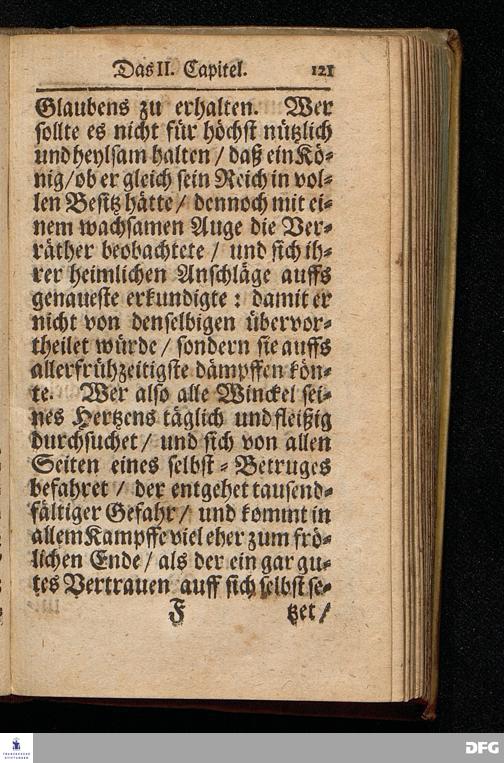 Das II. Capitel. 121
Glaubens zu erhalten. Wer
sollte es nicht für höchst nützlich
und heylsam halten / daß ein Kö-
nig / ob er gleich sein Reich in vol-
len Besitz hätte / dennoch mit ei-
nem wachsamen Auge die Ver-
räther beobachtete / und sich ih-
rer heimlichen Anschläge auffs
genaueste erkundigte : damit er
nicht von denselbigen übervor-
theilet würde / sondern sie auffs
allerfrühzeitigste dämpffen kön-
te. Wer also alle Winckel sei-
nes Hertzens täglich und fleißig
durchsuchet / und sich von allen
Seiten eines selbst-Betruges
befahret / der entgehet tausend-
fältiger Gefahr / und kommt in
allem Kampffe viel eher zum frö-
lichen Ende / als der ein gar gu-
tes Vertrauen auff sich selbst se-
F tzet /
FRANCKESCHE
STIFTUNGEN
DFG